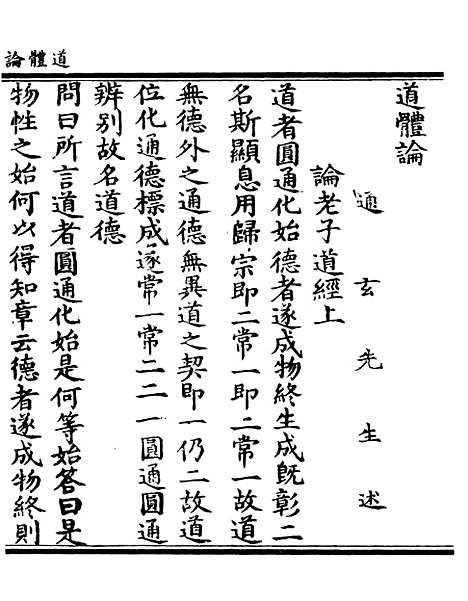 道體論
道體論
通玄先生述
論老子道經上
道者圓通化始德者遂成物終生成既彰二
名斯顯息用歸宗即二常一即二常一故道
無德外之通德無異道之契即一仍二故道
位化通德標成遂常一常二二一圓通圓通
辨别故名道德
問曰所言道者圓通化始是何等始答曰是
物性之始何以得知章云德者遂成物終則